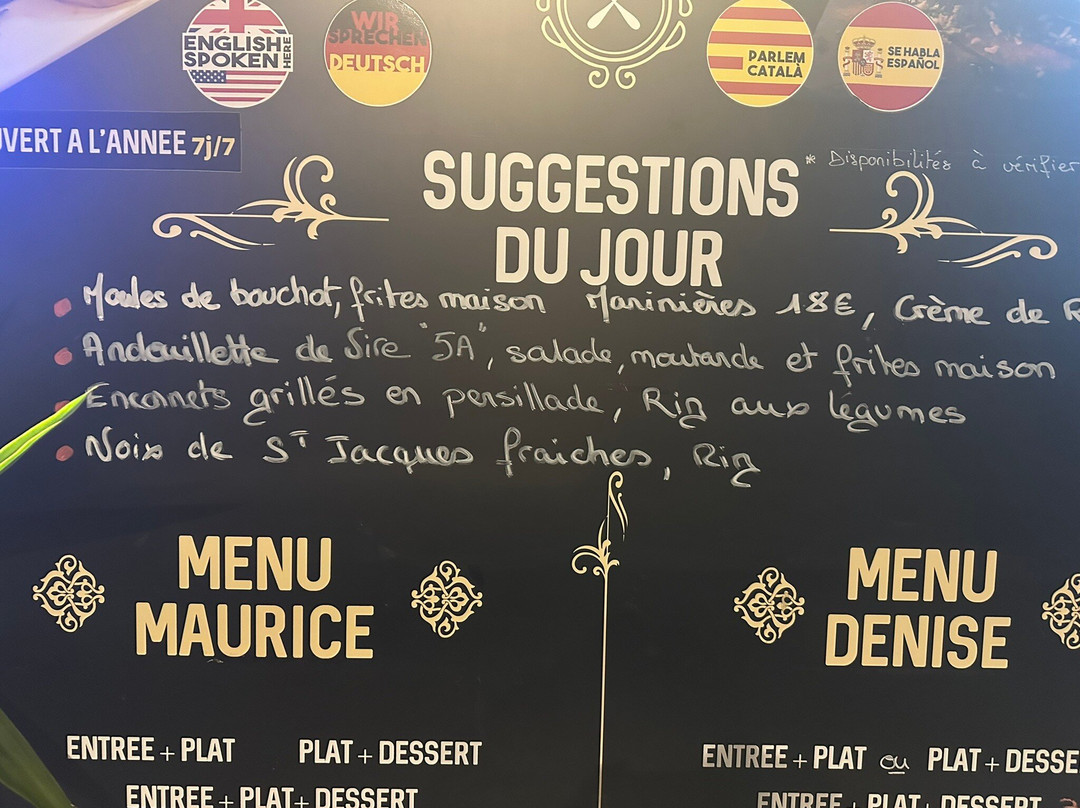 ENGLISH SPOKEN HERE
WIR SPRECHEN DEUTSCH
PARLEM CATALÀ
SE HABLA ESPAÑOL
UVERT A L'ANNEE 7j/7
* Disponibilités à vérifier
SUGGESTIONS
DU JOUR
• Moules de bouchot, frites maison Marinières 18€, Crème de
• Andouillette de Sire "5A", salade, moutarde et frites maison
• Encornets grillés en persillade, Riz aux légumes
• Noix de St Jacques fraiches, Riz
MENU
MAURICE
ENTREE + PLAT PLAT + DESSERT
ENTREE + PLAT + DESSERT
MENU
DENISE
ENTREE + PLAT ou PLAT + DESSE
ENTREE + PLAT + DESSERT